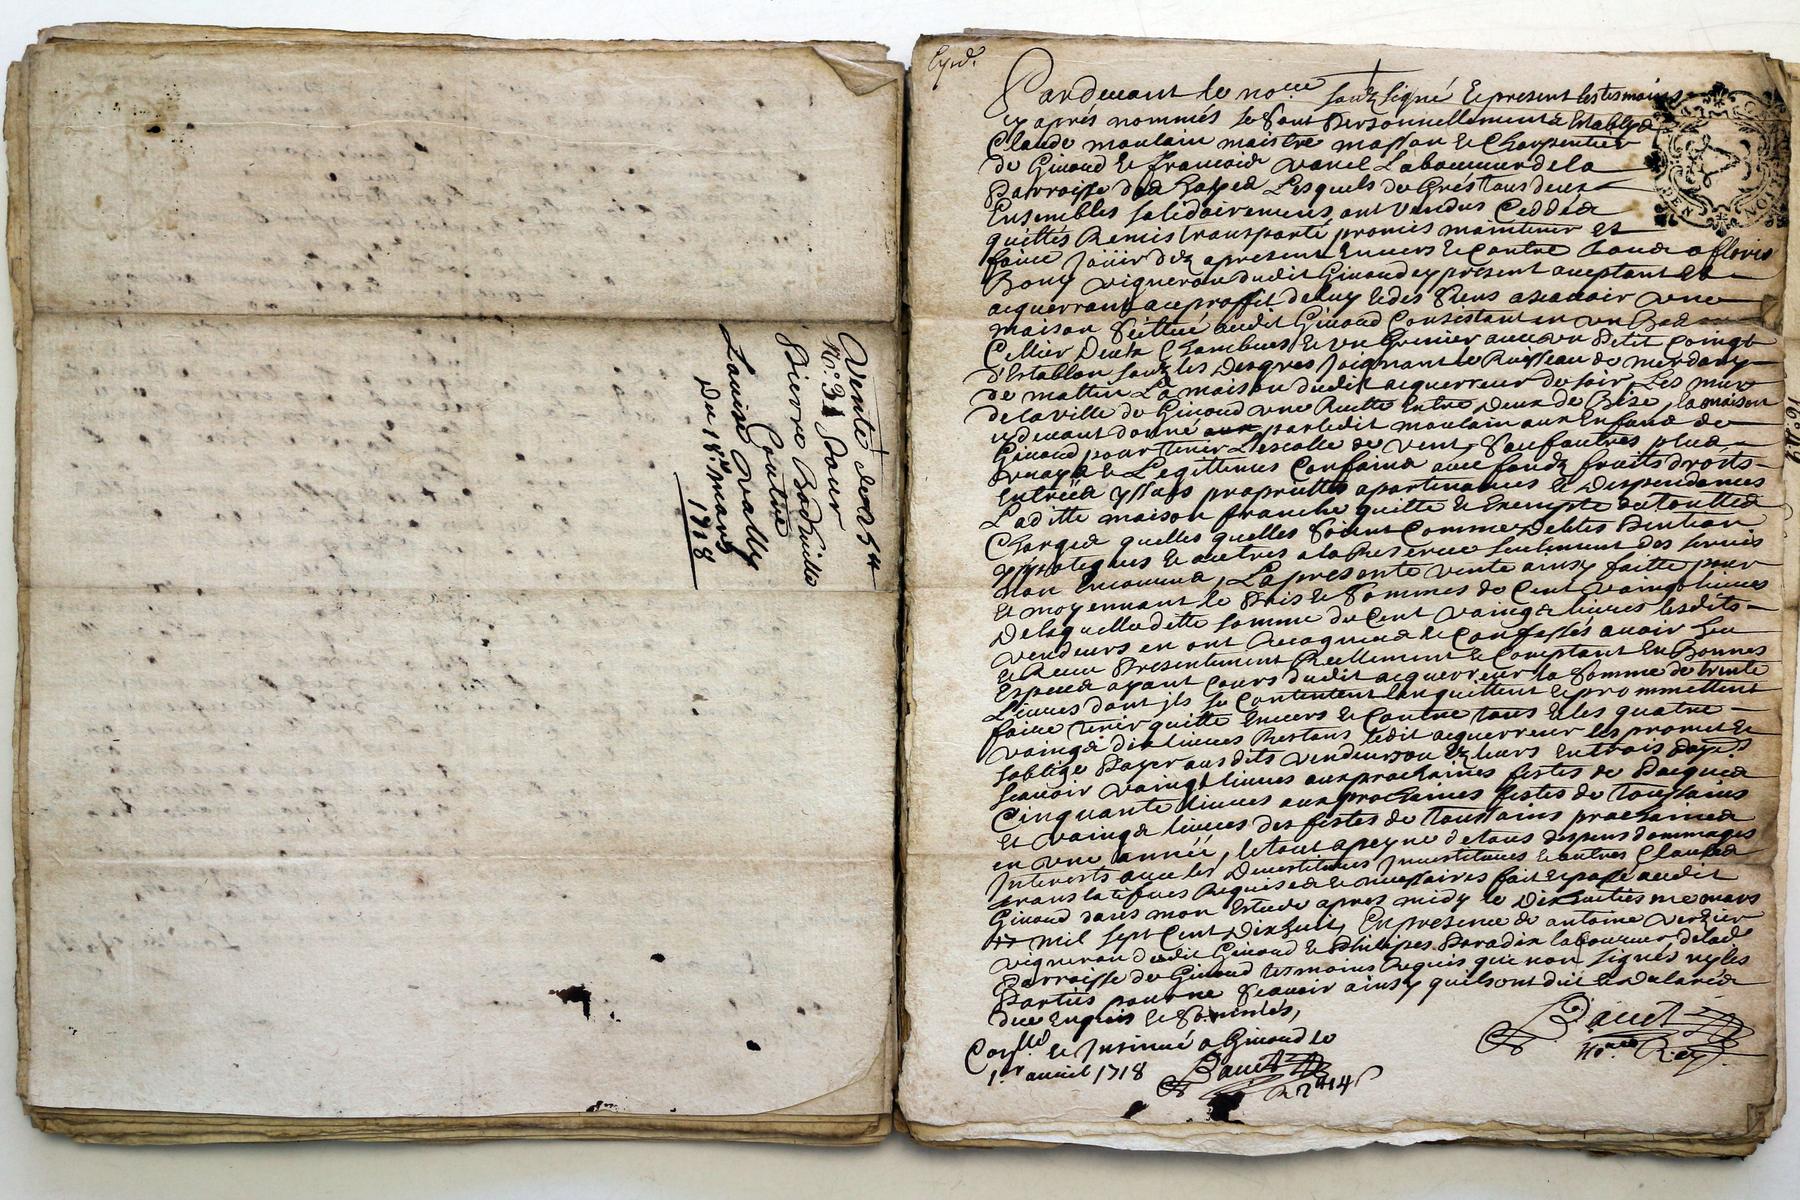 Vente de 25ᵗᵗ
N.º 31 Pour
Pierre Badueille
Contre
Louise Vally
Du 18.ᵉ mars
1718
Pardeuant le no.re soubzsigné Et present les tesmoins
cy apres nommés se sont Personnellement Establys
Claude moulain maistre masson & Charpentier
de Giuaud & francois Vanel Laboureur de la
Parroisse des Lesquels de Grés tous deux
Ensembles solidairement ont vendus Ceddés
quittés Remis transporté promis maintenir Et
faire Jouir dez apresent Enuers & Contre tous a floris
Bony vigneron dudit Giuaud cy present aceptant Et
acquerrant au proffit de luy & des siens ascauoir vne
maison scittué audit Giuaud Consistant en vn Bas
Cellier Deux Chambres & vn Grenier auec vn Petit Coingt
d'Establon soubz les Desgres Joignant le Ruisseau de merdary
de mattin La maison dudit acquerreur de soir, Les mur
de la ville de Giuaud vne Ruette Entre Deux de Bize, la maison
cy deuant donné par ledit moulain aux Enfans de
Giuaud pour tenir Lescolle de vent, sauf autres plus
vrays & Legittimes Confains auec fondz fruits droits
Entrées yssues propriettes apartenances & Despendances
Laditte maison franche quitte & Exempte de touttes
Charges quelles quelles soient Comme Debtes Pention
ypoteques & autres a la Reserue seulement des seruis
Non Encourus, La presente vente ainsy faitte pour
Et moyennant le Prix & sommes de Cent vaingt liures
De laquelle ditte somme de Cent vaingts liures lesdits
vendeurs en ont Recogneus & Confessés auoir heu
& Receu Presentement Reellement & Comptant En Bonnes
Especes ayant Cours dudit acquerreur la somme de trente
Liures dont jls se Contentent Len quittent & prommettent
faire tenir quitte Enuers & Contre tous & les quatre
vaings dix liures Restans ledit acquerreur les promet &
soblige Payer aus dits vendeurs ou Ez leurs En trois payes
scauoir vaingt liures aux prochaines festes de Pacques
Cinquante liures aux prochaines festes de toussains
Et vaings liures des festes de toussains prochaines
en vne année, le tout a peyne de tous despens dommages
Interests auec les Deuestitures Inuestitures & autres Clauses
translatifues Requises & necessaires fait & passé audit
Giuaud dans mon Estude apres midy le Dixhuitiesme mars
mil sept Cent Dixhuit, En presence de antoine verzier
vigneron dudit Giuaud & Philipes Paradix laboureur de lad.
Parroisse de Giuaud tesmoins Requis qui non signes ny les
Parties pour ne scauoir ainsy quils ont dit & Declarés
due Enquis & sommés,
Bauet
no.re Roy.
& Insinué a Giuaud le
1.er auril 1718 Bauet